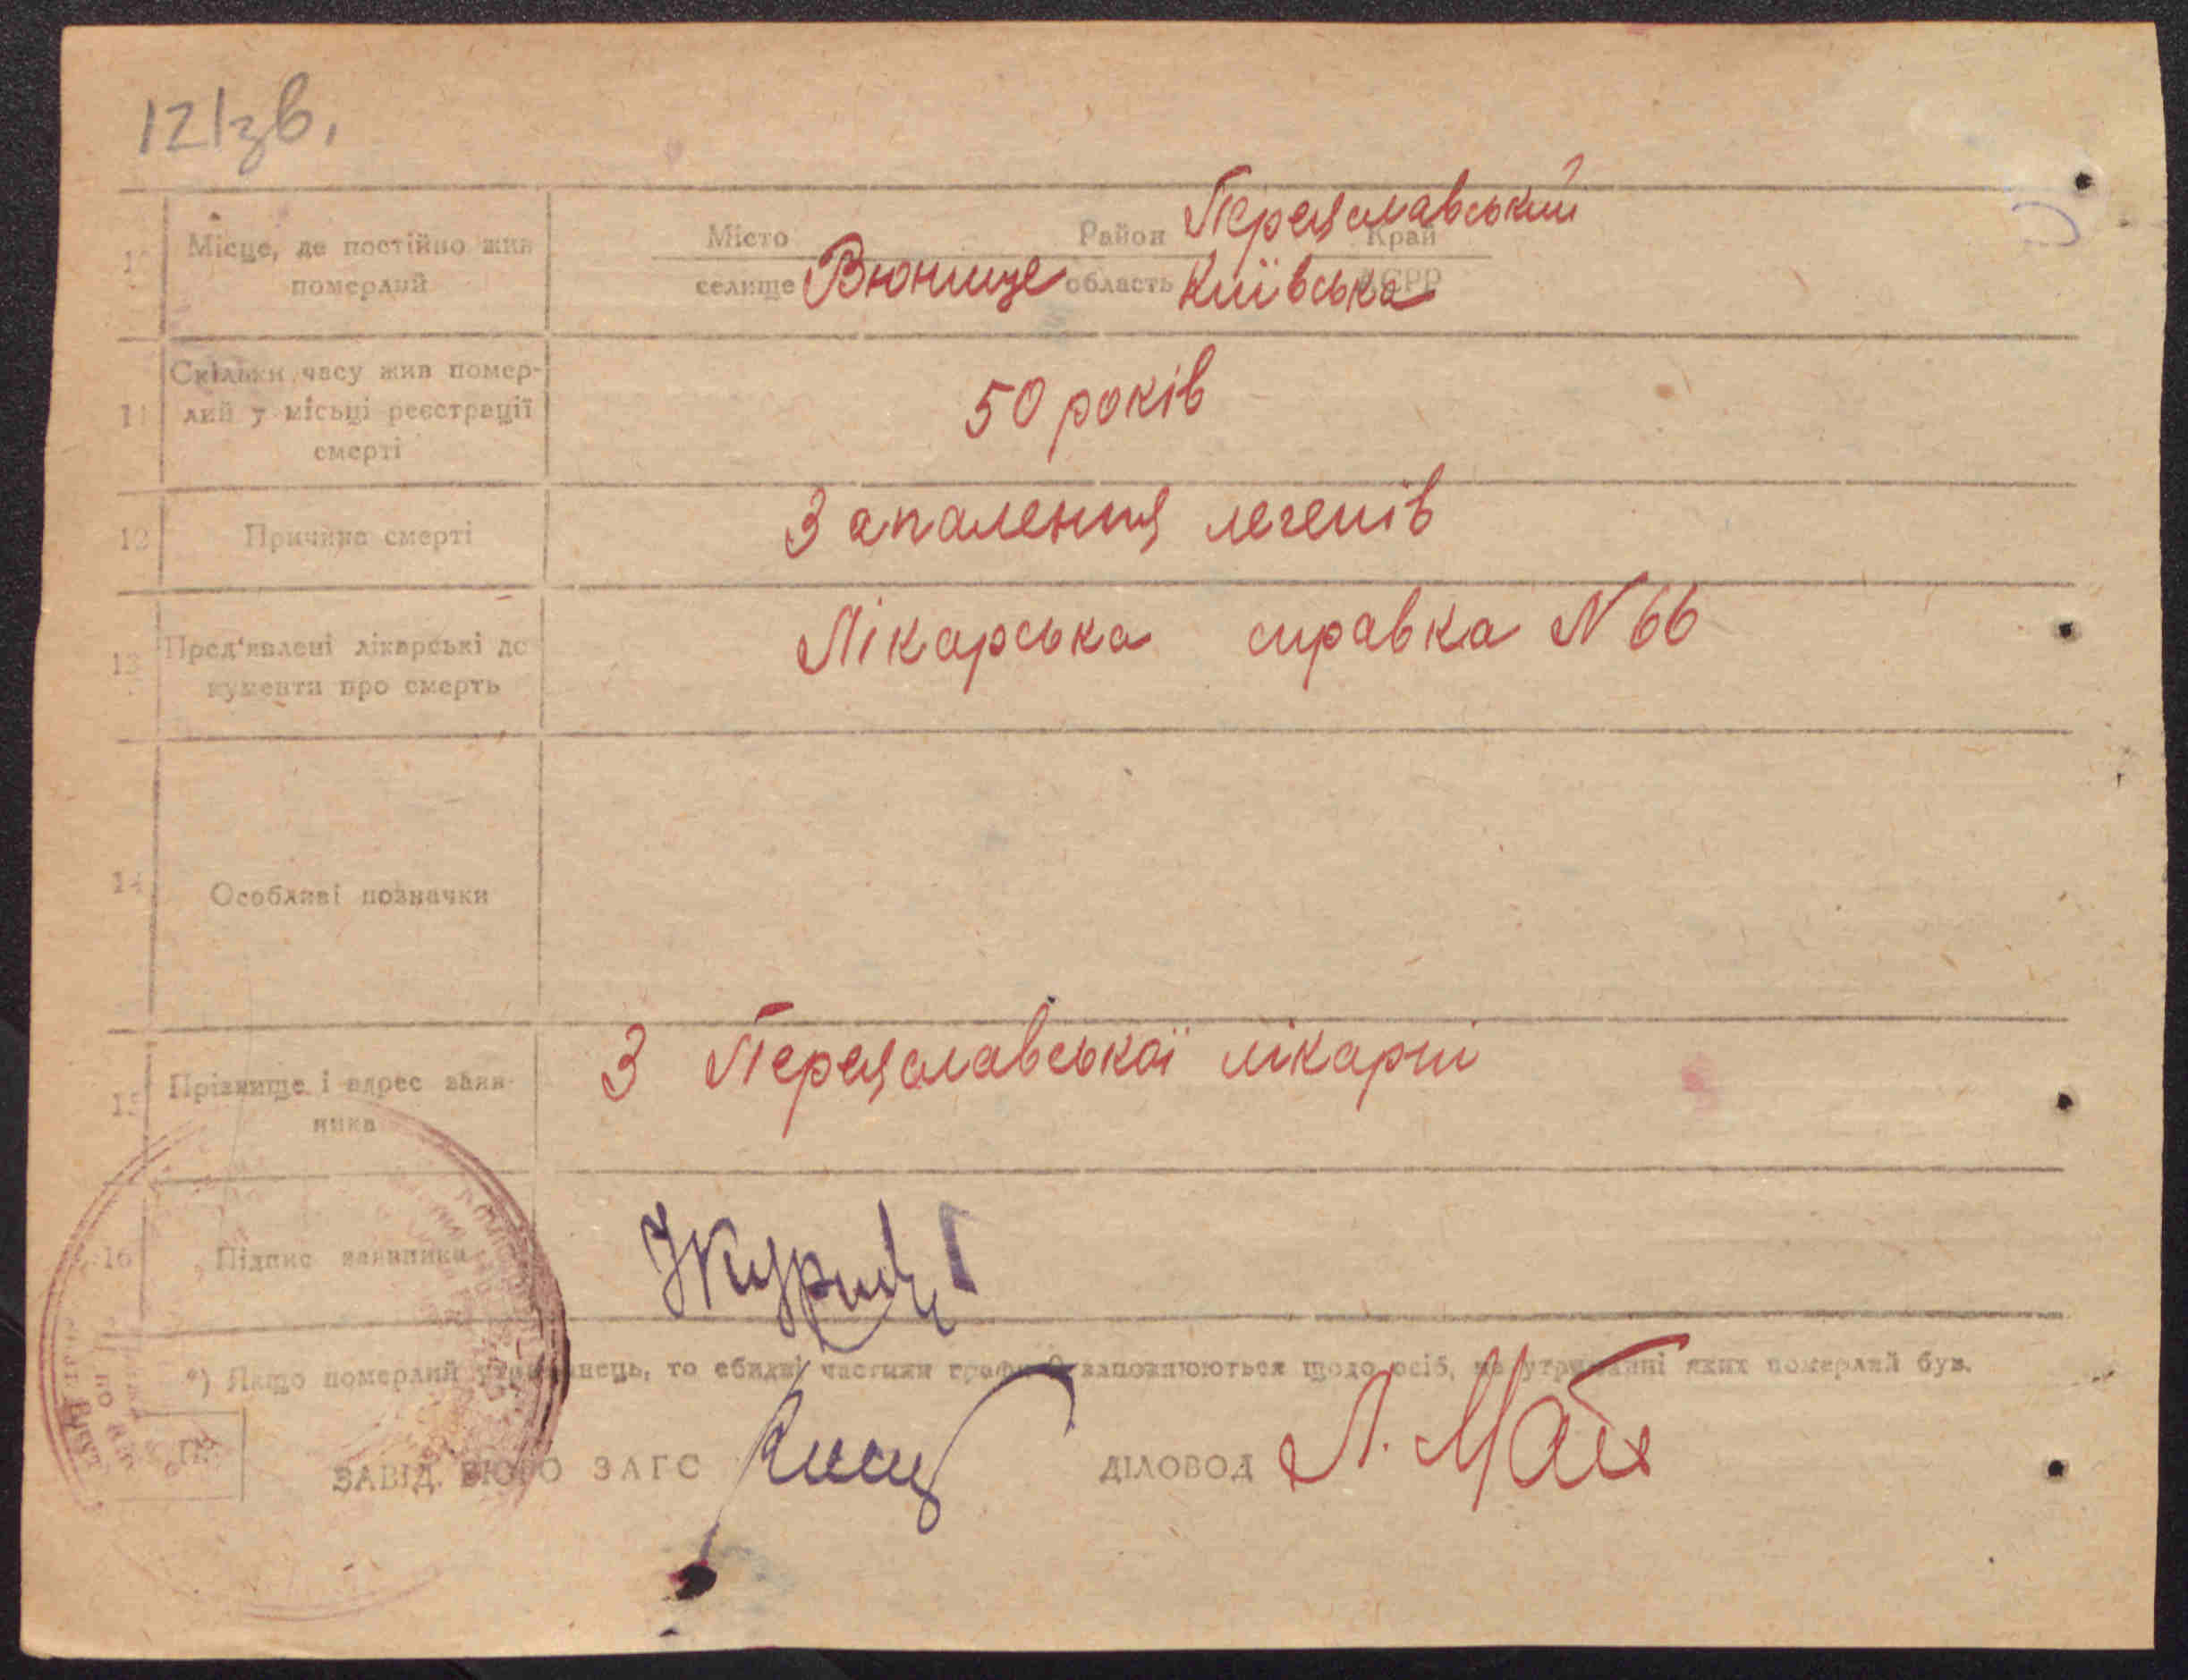 121зв.
10 Місце, де постійно жив
померлий
Місто Район Переяславський Край
селище Вюнище область Київська АСРР
11 Скільки часу жив помер-
лий у місьці реєстрації
смерті
50 років
12 Причина смерті Запалення легенів
13 Пред'явлені лікарські до
кументи про смерть
Лікарська справка N 66
14 Особливі позначки
15 Прізвище і адрес заяв-
ника
З Переяславської лікарні
16 Підпис заявника
*) Якщо померлий утриманець, то обидві частини графи 9 заповнюються щодо осіб, на утриманні яких померлий був.
ЗАВІД. БЮРО ЗАГС ДІЛОВОД